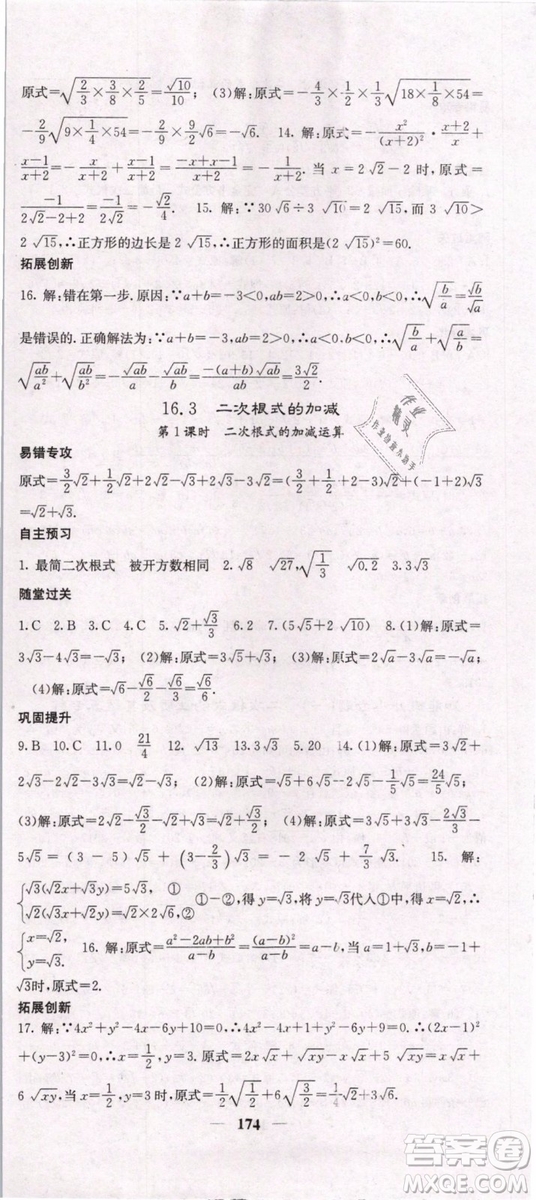 原式=√(2/3×3/8×2/5)=√10/10; (3)解:原式=-4/3×1/2√(18×1/8×54)=
-2/9√(9×1/4×54)=-2/9×9/2√6=-√6. 14.解:原式=-x²/(x+2)²·(x+2)/x+
(x-1)/(x+2)=-x/(x+2)+(x-1)/(x+2)=(-x+x-1)/(x+2)=-1/(x+2).当 x=2√2-2时,原式=
-1/(2√2-2+2)=-1/(2√2)=-√2/4. 15. 解:∵30√6÷3√10=2√15,而3√10>
2√15,∴正方形的边长是2√15,∴正方形的面积是(2√15)²=60.
拓展创新
16.解:错在第一步.原因:∵a+b=-3<0,ab>0,∴a<0,b<0,∴√(b/a)=√b/√a
是错误的.正确解法为:∵a+b=-3,ab=2>0,∴a<0,b<0,∴√(b/a)+√(a/b)=
√(ab/a²)+√(ab/b²)=-√ab/a-√ab/b=-(a+b)√ab/ab=3√2/2.
16.3 二次根式的加减
第1课时 二次根式的加减运算
易错专攻
原式=3/2√2+1/2√2+2√3+2√2-3√2-√3=(3/2+1/2+2-3)√2+(-1+2)√3
=√2+√3.
自主预习
1.最简二次根式 被开方数相同 2.√8 √27,√(1/3) √0.2 3.3√3
随堂过关
1.C 2.B 3.C 4.C 5.√2+√3/3 6.2 7.(5√2+2√10) 8.(1)解:原式=
3√3-4√3=-√3; (2)解:原式=4√3-2√3=2√3; (3)解:原式=2√a-3√a=-√a;
(4)解:原式=√6-√6/2-√6/3=√6/6.
巩固提升
9.B 10.C 11.0 21/4 12.√13 13.3√2 5.20 14.(1)解:原式=3√2+
2√3-2√2-3√3=√2-√3; (2)解:原式=√5+6√5-2√5-1/5√5=24/5√5;
(3)解:原式=2√2+√3/3-√2/2-√2+√3=√2/2+4√3/3; (4)解:原式=3√5+3√3-2√3/3-
5√5=(3-5)√5+(3-2/3)√3=-2√5+7/3√3. 15. 解:
{√3(√2x-y)=√3, ① √2(√3x-√2y)=√2, ② ①-②,得y=√3,将y=√3代人①中,得x=√2,∴
{x=√2, y=√3. 16.解:原式=(a²-2ab+b²)/(a-b)=(a-b)²/(a-b)=a-b,当a=√3+1,b=-1+
√3时,原式=2.
拓展创新
17.解:∵4x²+y²-4x-6y+10=0,∴4x²-4x+1+y²-6y+9=0,∴(2x-1)²
+(y-3)²=0,∴x=1/2,y=3,原式=2x√x+√xy-x√x+5√xy=x√x+
6√xy,当x=1/2,y=3时,原式=1/2√(1/2)+6√(3/2)=√2/4+3√6.
174